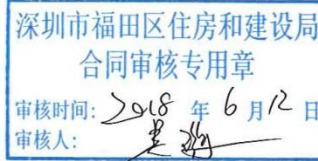 深圳市福田区住房和建设局
合同审核专用章
审核时间：2018 年 6 月 12 日
审核人：